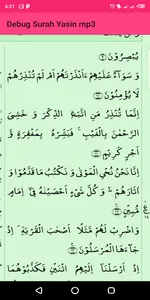 6:21
Debug Surah Yasin mp3
يُبْصِرُونَ ﴿٩﴾
وَ سَوَآءٌ عَلَيْهِمْ ءَاَنْذَرْتَهُمْ اَمْ لَمْ تُنْذِرْهُمْ
لَا يُؤْمِنُونَ ﴿١٠﴾
اِنَّمَا تُنْذِرُ مَنِ اتَّبَعَ الذِّكْرَ وَ خَشِيَ
الرَّحْمٰنَ بِالْغَيْبِ ۚ فَبَشِّرْهُ بِمَغْفِرَةٍ وَّ
اَجْرٍ كَرِيْمٍ ﴿١١﴾
اِنَّا نَحْنُ نُحْيِ الْمَوْتٰى وَ نَكْتُبُ مَا قَدَّمُوْا وَ
اٰثَارَهُمْ ؕ وَ كُلَّ شَيْءٍ اَحْصَيْنٰهُ فِيْٓ اِمَامٍ
مُّبِيْنٍ ﴿١٢﴾
وَ اضْرِبْ لَهُمْ مَّثَلًا اَصْحٰبَ الْقَرْيَةِ ۘ اِذْ
جَآءَهَا الْمُرْسَلُوْنَ ﴿١٣﴾
اِذْ اَرْسَلْنَآ اِلَيْهِمُ اثْنَيْنِ فَكَذَّبُوْهُمَا